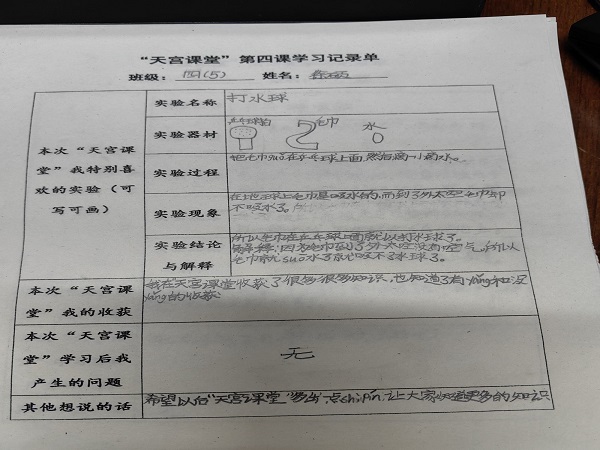 “天宫课堂”第四课学习记录单
班级：四(5) 姓名：
本次“天宫课堂”我特别喜欢的实验（可写可画）
实验名称 打水球
实验器材 乒乓球拍 毛巾 水
实验过程 把毛巾suǒ在乒乓球上面，然后滴一滴水。
实验现象 在地球上毛巾是吸水的，而到了外太空毛巾却
不吸水了。
实验结论与解释 所以毛巾在乒乓球上面就以打水球了。
解释：因为毛巾到了外太空没有空气，所以
毛巾就suō水了就吸不了水球了。
本次“天宫课堂”我的收获 我在天宫课堂收获了很多很多知识，也知道了有yǎng和没
yǎng的收获
本次“天宫课堂”学习后我产生的问题 无
其他想说的话 希望以后“天宫课堂”多出点shìpín，让大家知道更多的知识